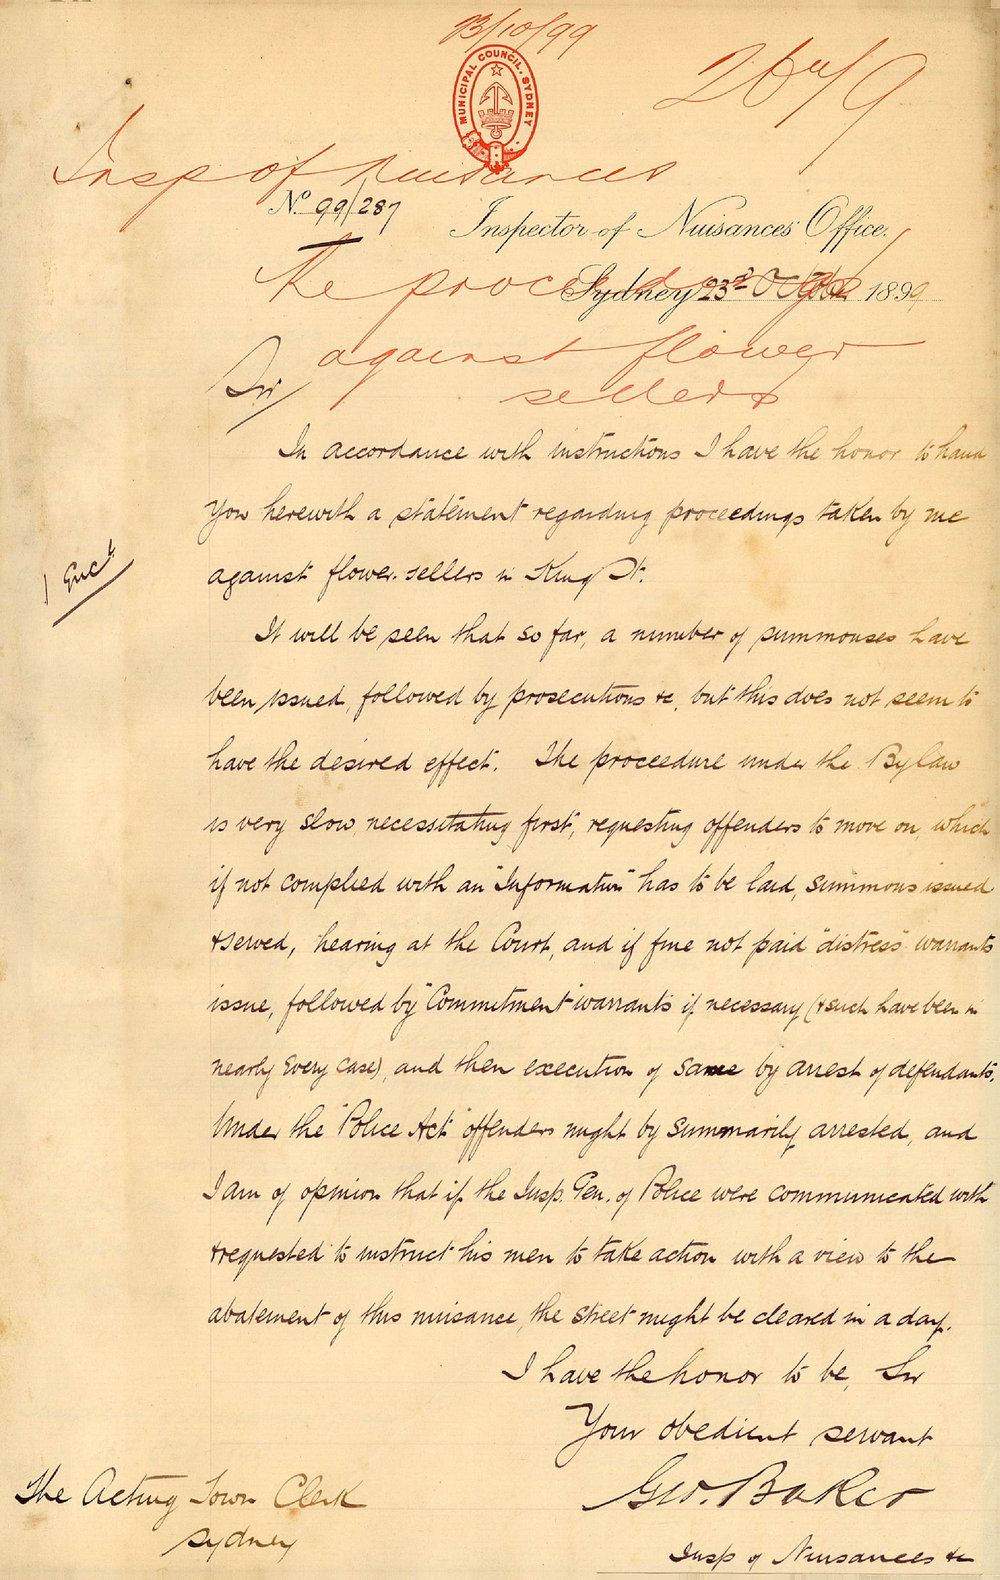 23/10/99
MUNICIPAL COUNCIL. SYDNEY
Insp of Nuisances
No 99/287
Inspector of Nuisances Office.
Sydney 23rd Octbr 1899
re proceedings
against flower
sellers
Sir/
In accordance with instructions I have the honor to hand
you herewith a statement regarding proceedings taken by me
against flower-sellers in King St.
1 Encl
It will be seen that so far, a number of summonses have
been issued, followed by prosecutions &c, but this does not seem to
have the desired effect. The proceedure under the Bylaw
is very slow, necessitating first, requesting offenders to move on, which
if not complied with an "Information" has to be laid, summons issued
& served, hearing at the Court, and if fine not paid "distress" warrants
issue, followed by "Commitment" warrants if necessary (& such have been in
nearly every case), and then execution of same by arrest of defendants.
Under the "Police Act" offenders might by summarily arrested, and
I am of opinion that if the Insp. Gen. of Police were communicated with
& requested to instruct his men to take action with a view to the
abatement of this nuisance, the street might be cleared in a day.
I have the honor to be, Sir
Your obedient servant
Geo. Baker
Insp of Nuisances &c
The Acting Town Clerk
Sydney